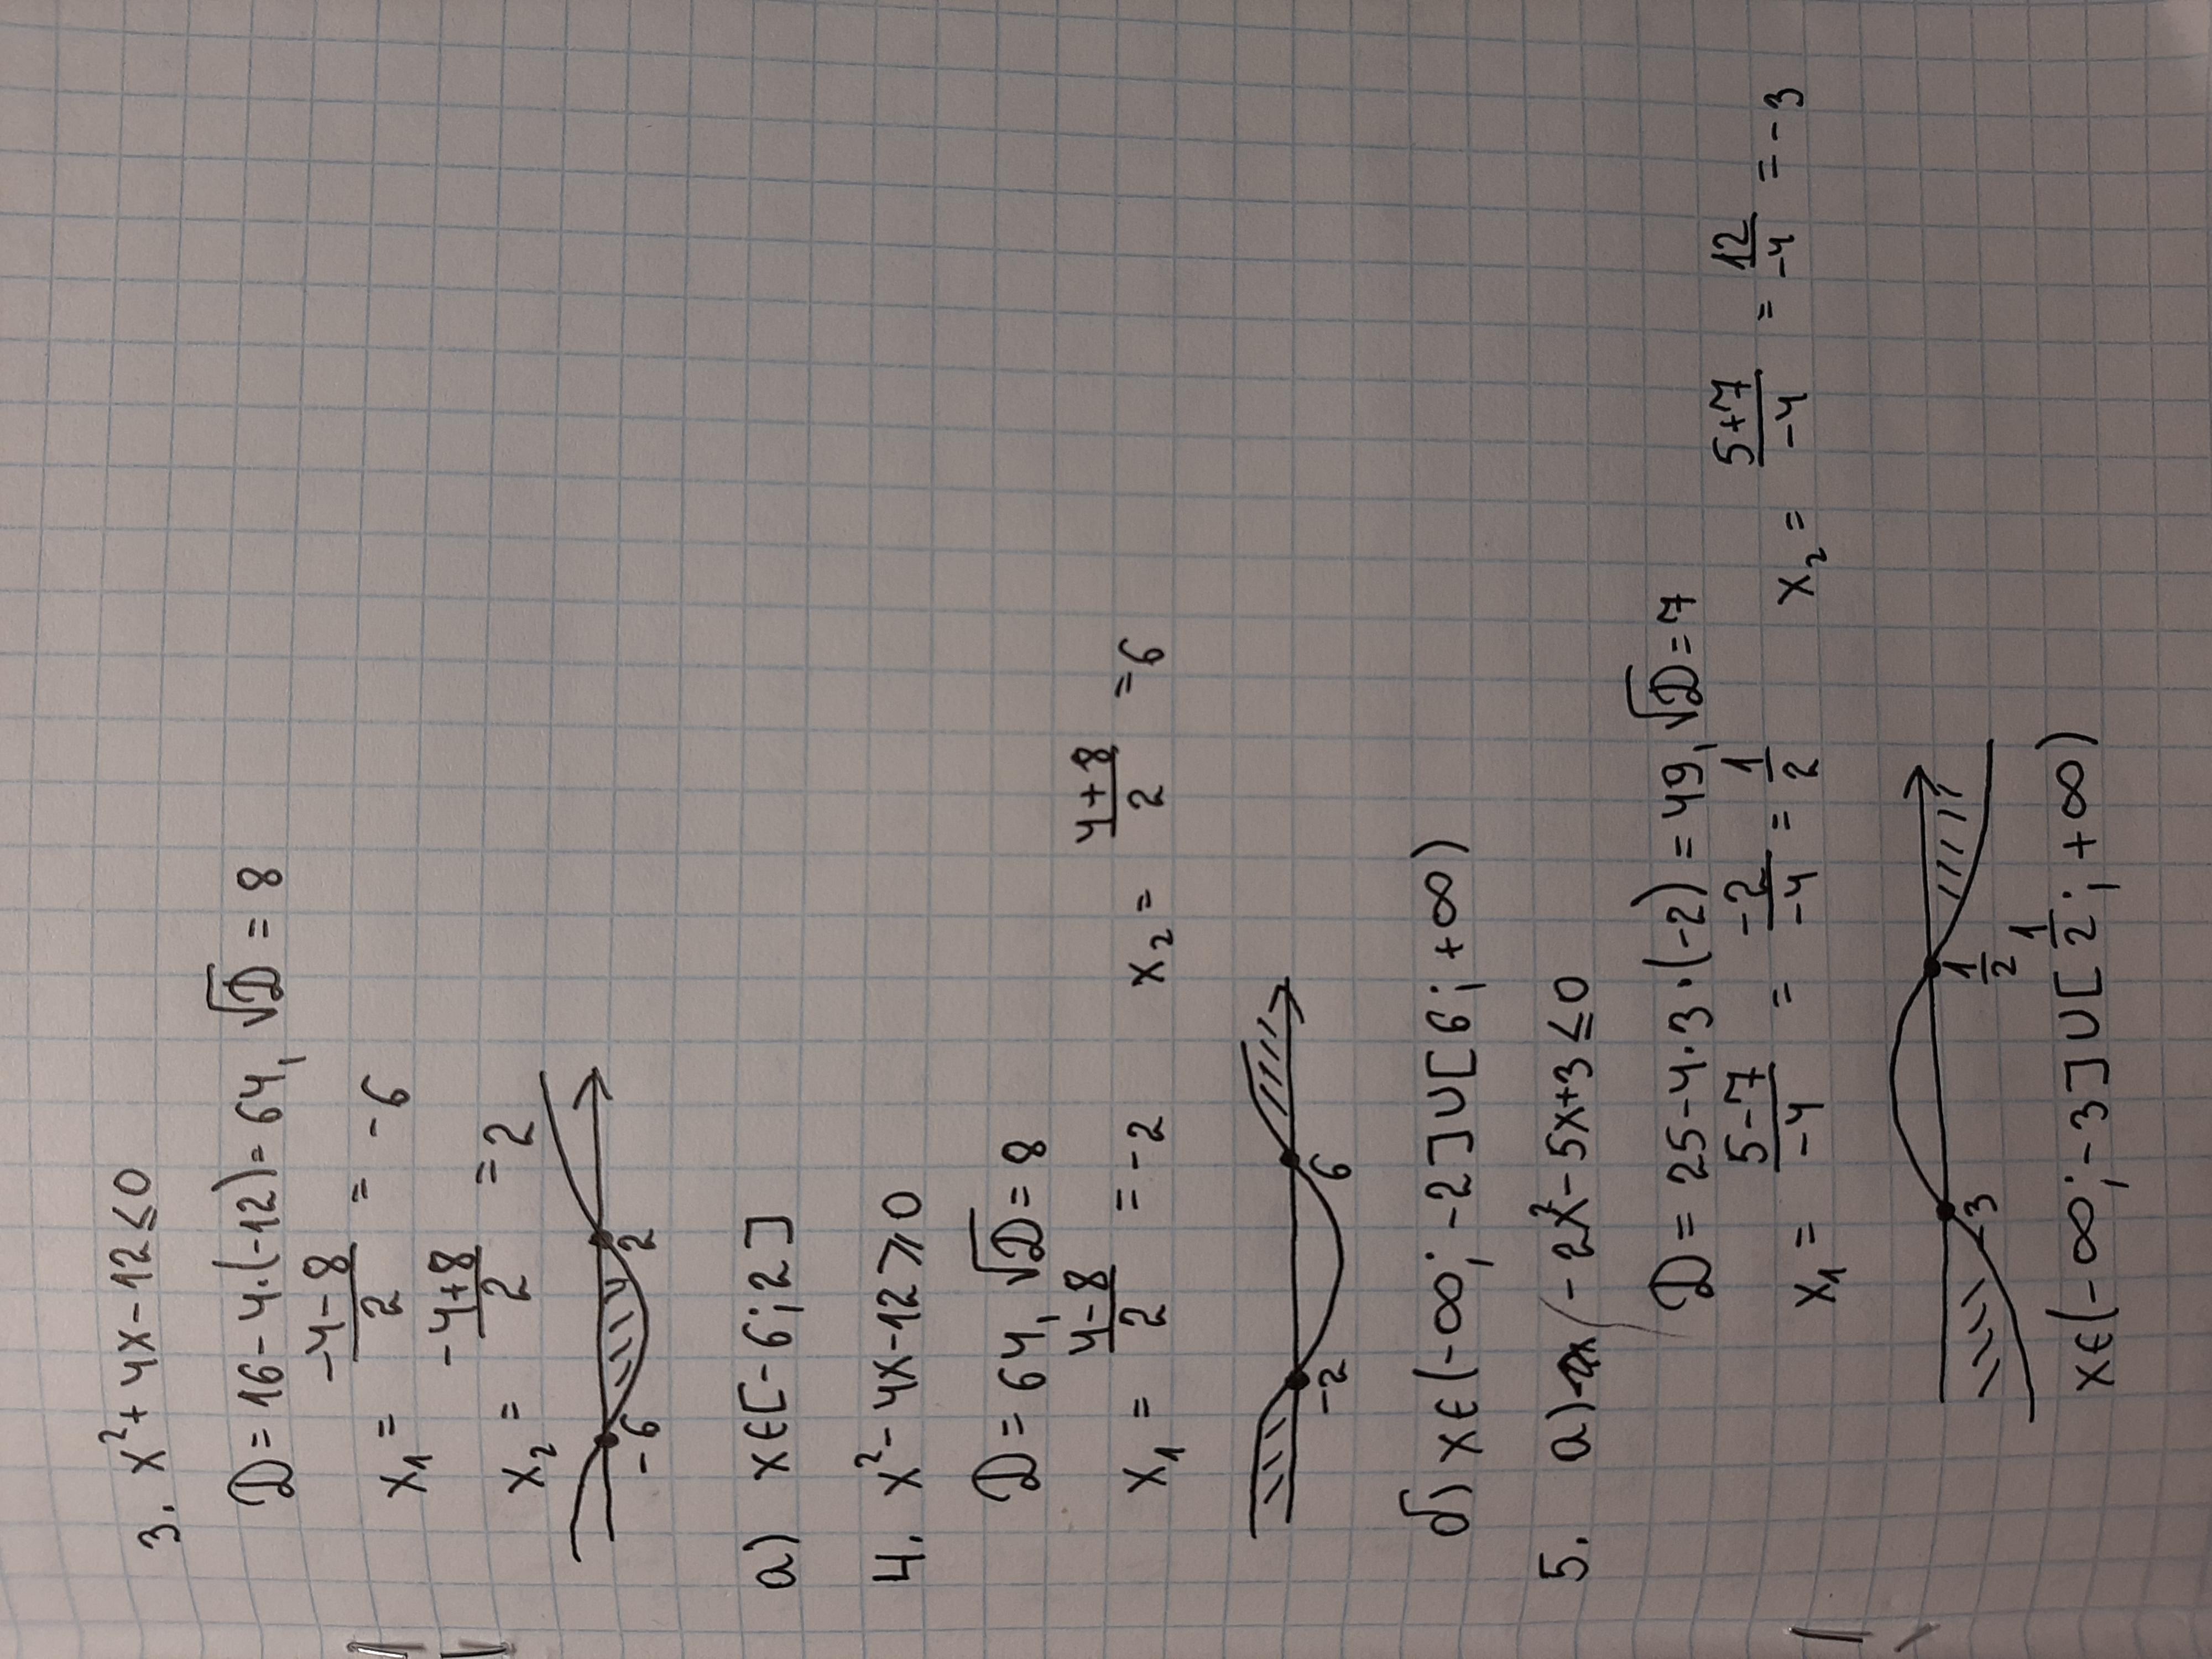 3. x² + 4x - 12 ≤ 0
D = 16 - 4·(-12) = 64, √D = 8
x₁ = (-4-8)/2 = -6
x₂ = (-4+8)/2 = 2
-6 2
а) x∈[-6; 2]
4. x² - 4x - 12 ⩾ 0
D = 64, √D = 8
x₁ = (4-8)/2 = -2 x₂ = (4+8)/2 = 6
-2 6
б) x∈(-∞; -2]∪[6; +∞)
5. а) -2x² - 5x + 3 ≤ 0
D = 25 - 4·3·(-2) = 49, √D = 7
x₁ = (5-7)/-4 = -2/-4 = 1/2 x₂ = (5+7)/-4 = 12/-4 = -3
3 1/2
x∈(-∞; -3]∪[1/2; +∞)